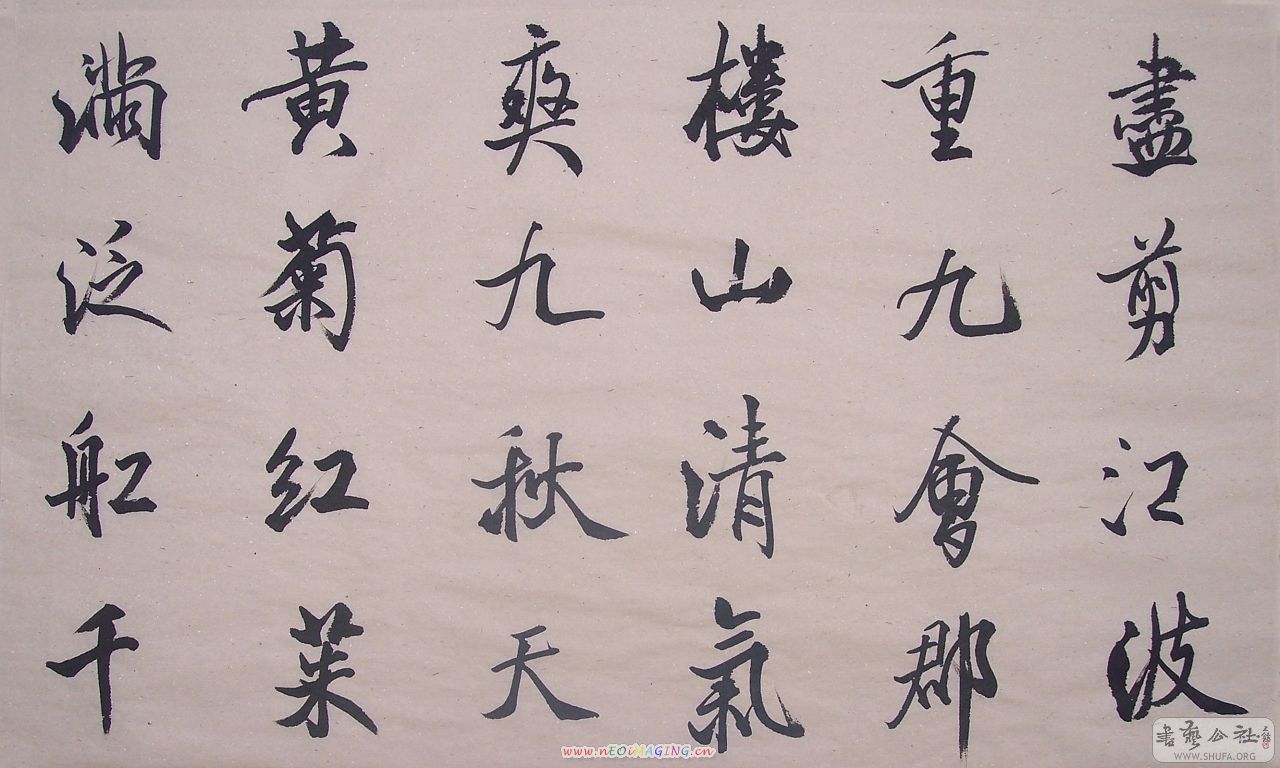 盡剪江波
重九會郡
樓山清氣
爽九秋天
黄菊红茱
滿泛舡千
www.nEOiMAGING.cn
書藝公社
WWW.SHUFA.ORG